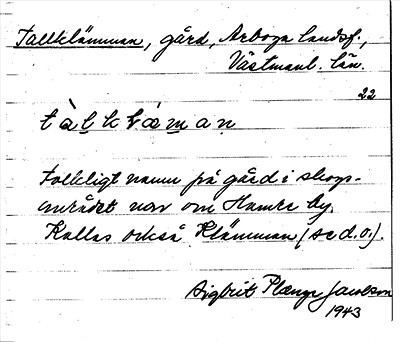 Tallklämman, gård, Arboga landsf.,
Västmanl. län.
22
Folkligt namn på gård i skogs-
området nov om Hamre by.
Kallas också Klämman (se d.o.).
Sigbrit Plænge Jacobson
1943